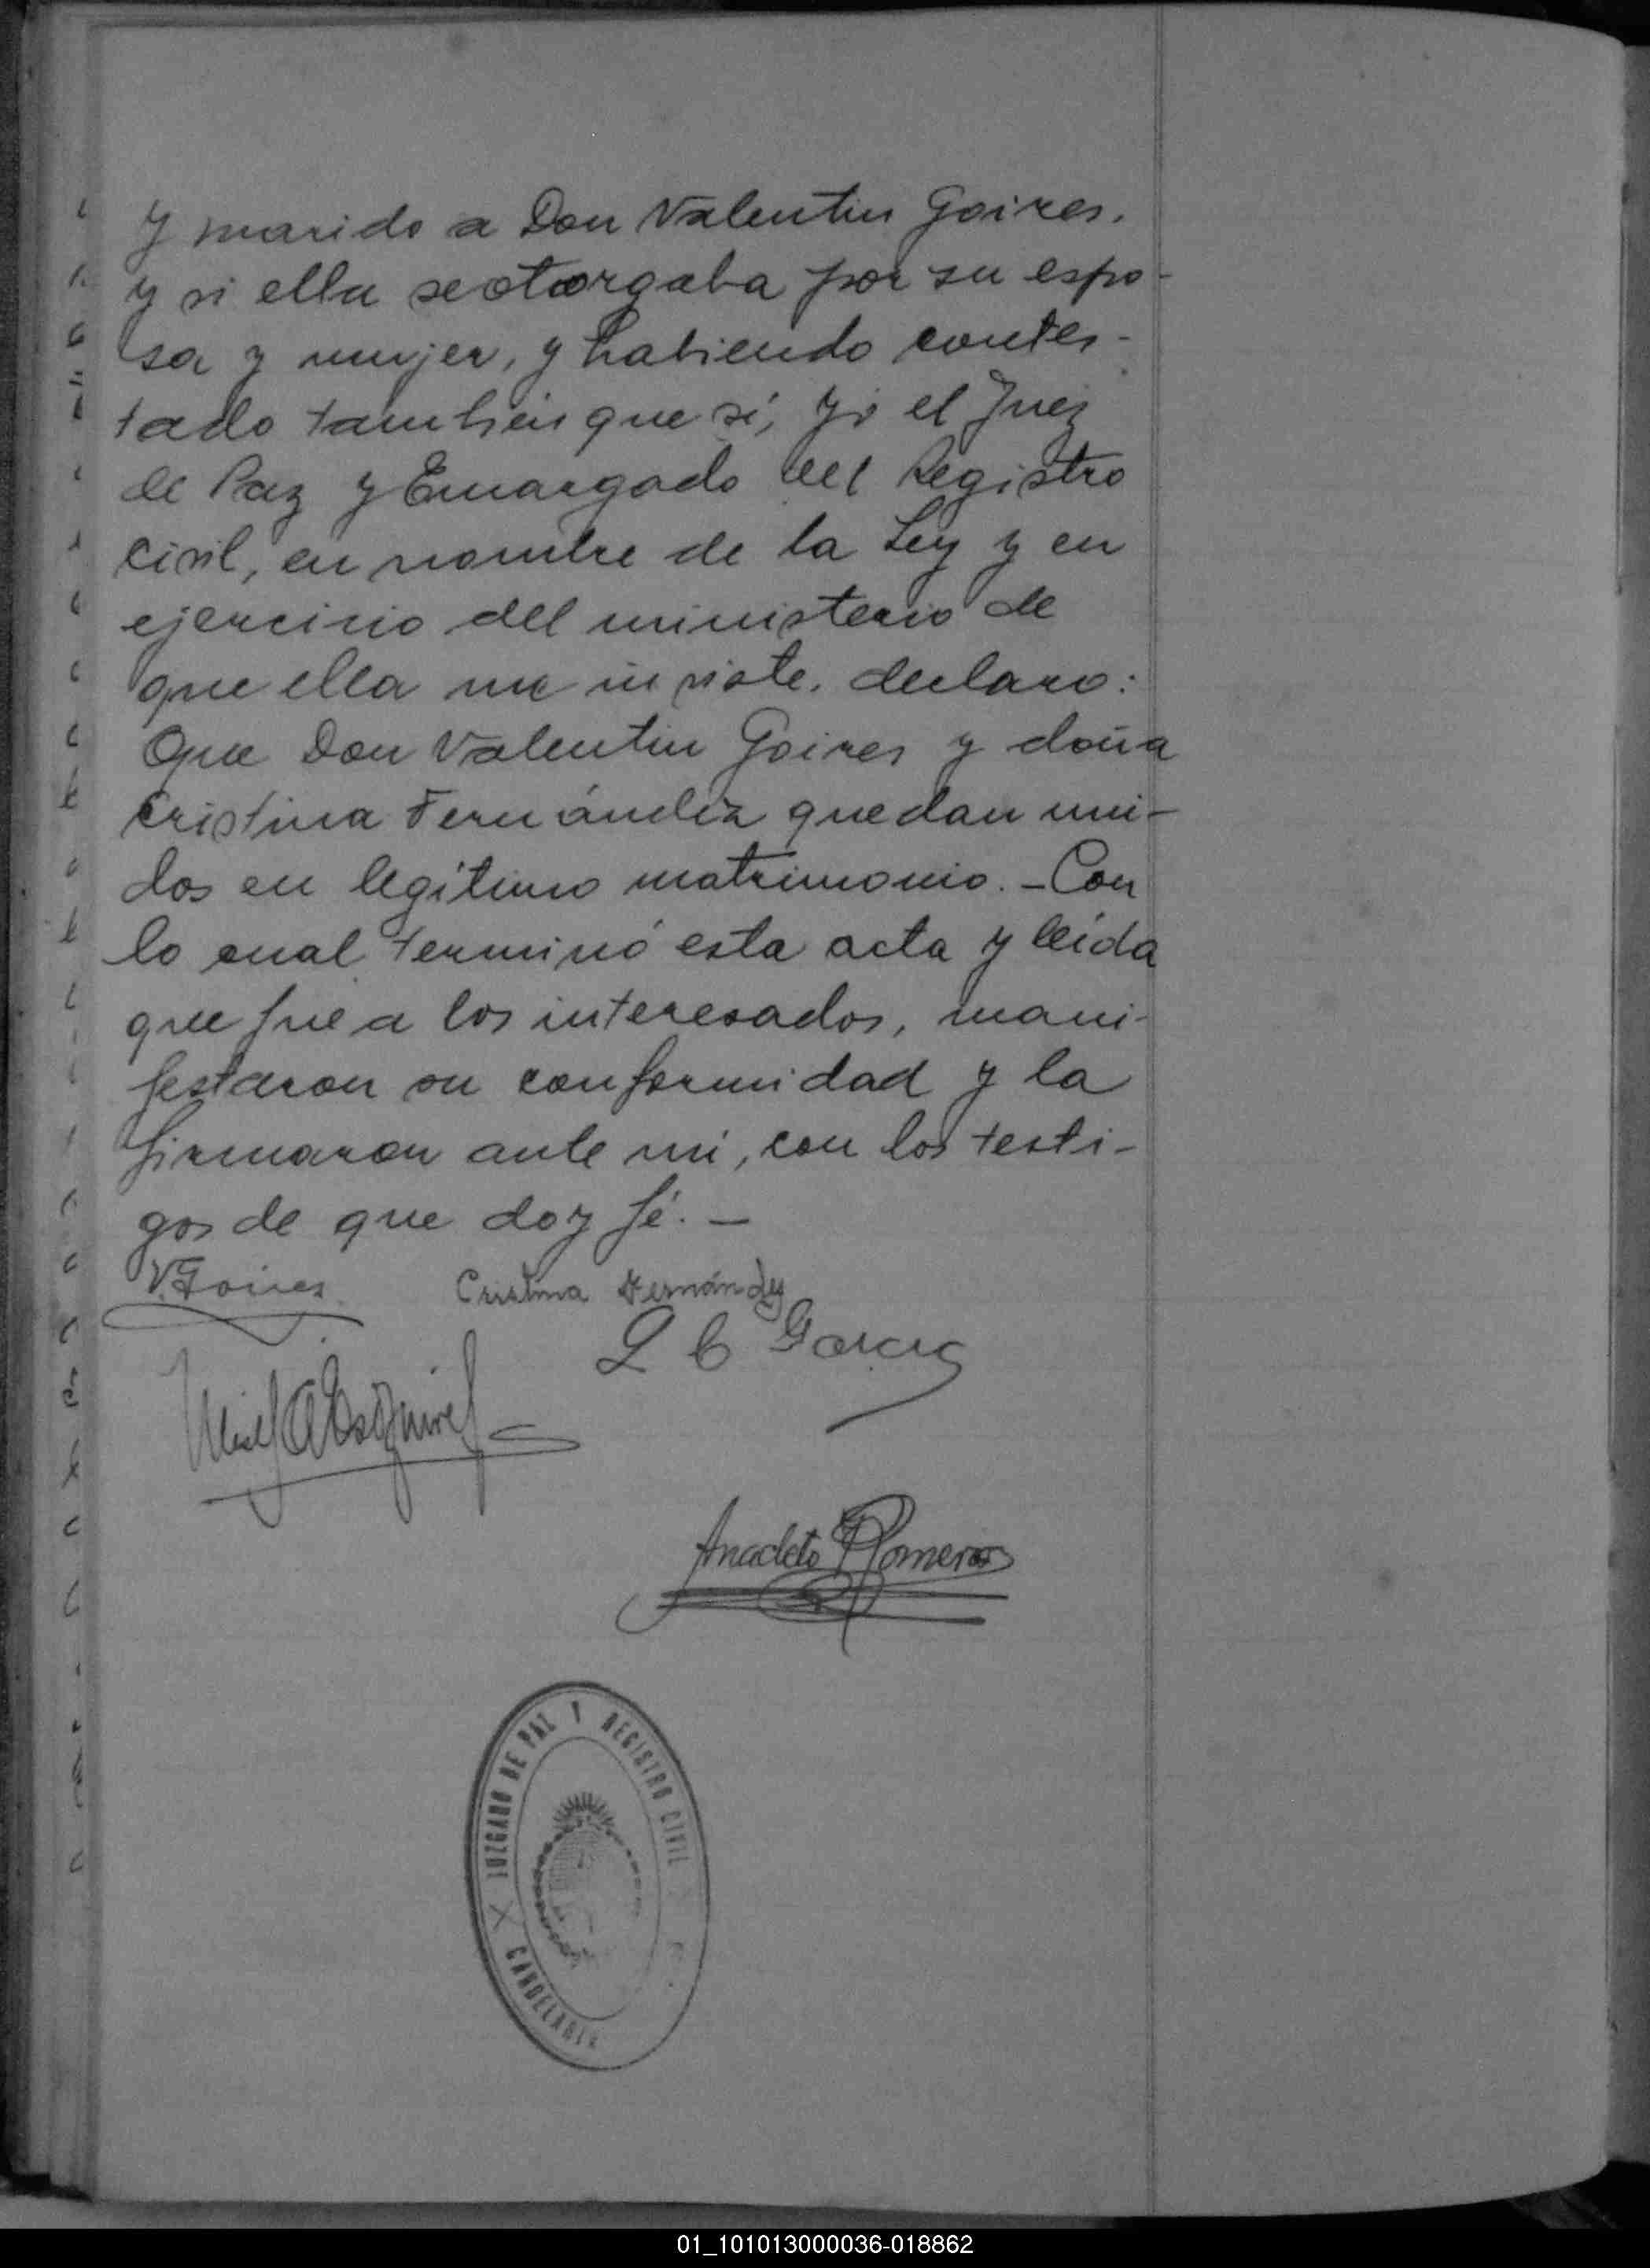 y marido a Don Valentin Goires.
y si ella se otorgaba por su espo-
sa y mujer, y habiendo contes-
tado también que sí, yo el Juez
de Paz y Encargado del Registro
civil, en nombre de la Ley y en
ejercicio del ministerio de
que ella me inviste, declaro:
Que Don Valentin Goires y doña
Cristina Fernández quedan uni-
dos en legítimo matrimonio. - Con
lo cual terminó esta acta y leída
que fue a los interesados, mani-
festaron su conformidad y la
firmaron ante mi, con los testi-
gos de que doy fé. -
V. Goires Cristina Fernández
L C Garcia
A Esquivel
Anacleto Romero
JUZGADO DE PAZ Y REGISTRO CIVIL
CANDELARIA
01_101013000036-018862